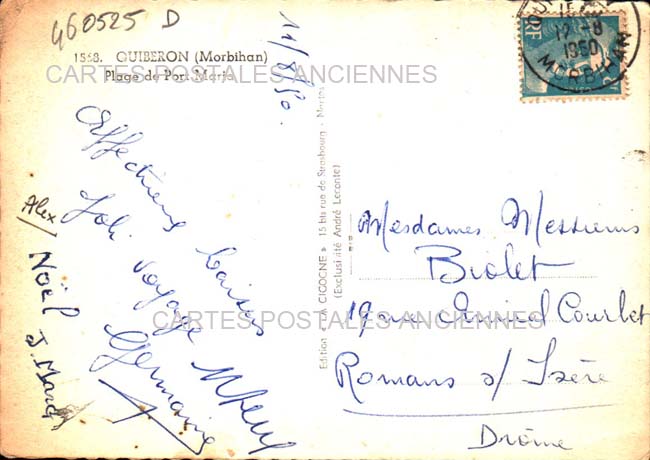 460525 D
1558. QUIBERON (Morbihan)
Plage de Port Maria
CARTES POSTALES ANCIENNES
11/8/50.
Affectueux baisers
Joli voyage
Germaine
Alex
Noël
J. Marc
Edition "LA CIGOGNE" 15 bis rue de Strasbourg - Nantes
(Exclusivité André Leconte)
12 -8
1950
MORBIHAN
Mesdames Messieurs
Biolet
19 rue Amiral Courbet
Romans s/ Isère
Drôme
CARTES POSTALES ANCIENNES